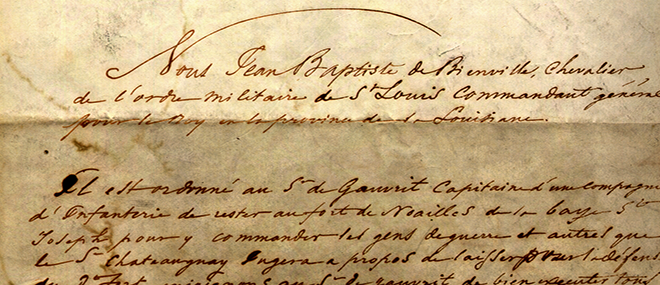 Nous Jean Baptiste de Bienville, Chevalier
de l'ordre militaire de St Louis Commandant général
pour le Roy en la province de la Louisiane.
Il est ordonné au Sr de Gauvrit Capitaine d'une compagnie
d'Infanterie de rester au fort de Noailles de la baye Ste
Joseph pour y commander les gens de guerre et autres que
le Sr Chateaugnay Jugera a propos de laisser pour la défense
du Fort, au Sr de Gauvrit de bien executer tous